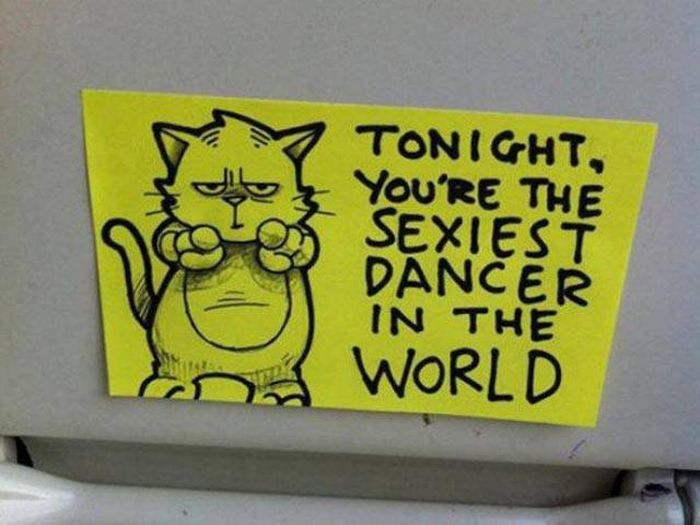 TONIGHT,
YOU'RE THE
SEXIEST
DANCER
IN THE
WORLD